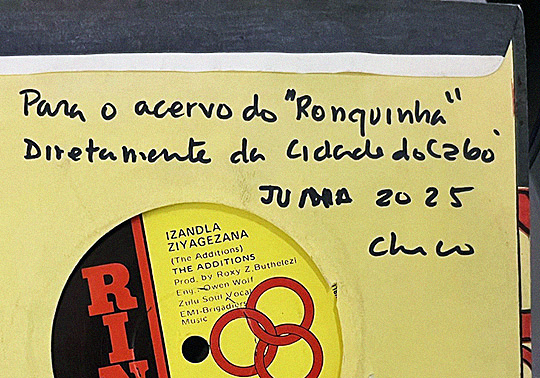 Para o acervo do "Ronquinha"
Diretamente da Cidade do Cabo
2025
Chico
IZANDLA
ZIYAGEZANA
(The Additions)
THE ADDITIONS
Prod. by Roxy Z. Buthelezi
Eng.: Owen Wolf
Zulu Soul Vocal
EMI-Brigadiers
Music
RIN